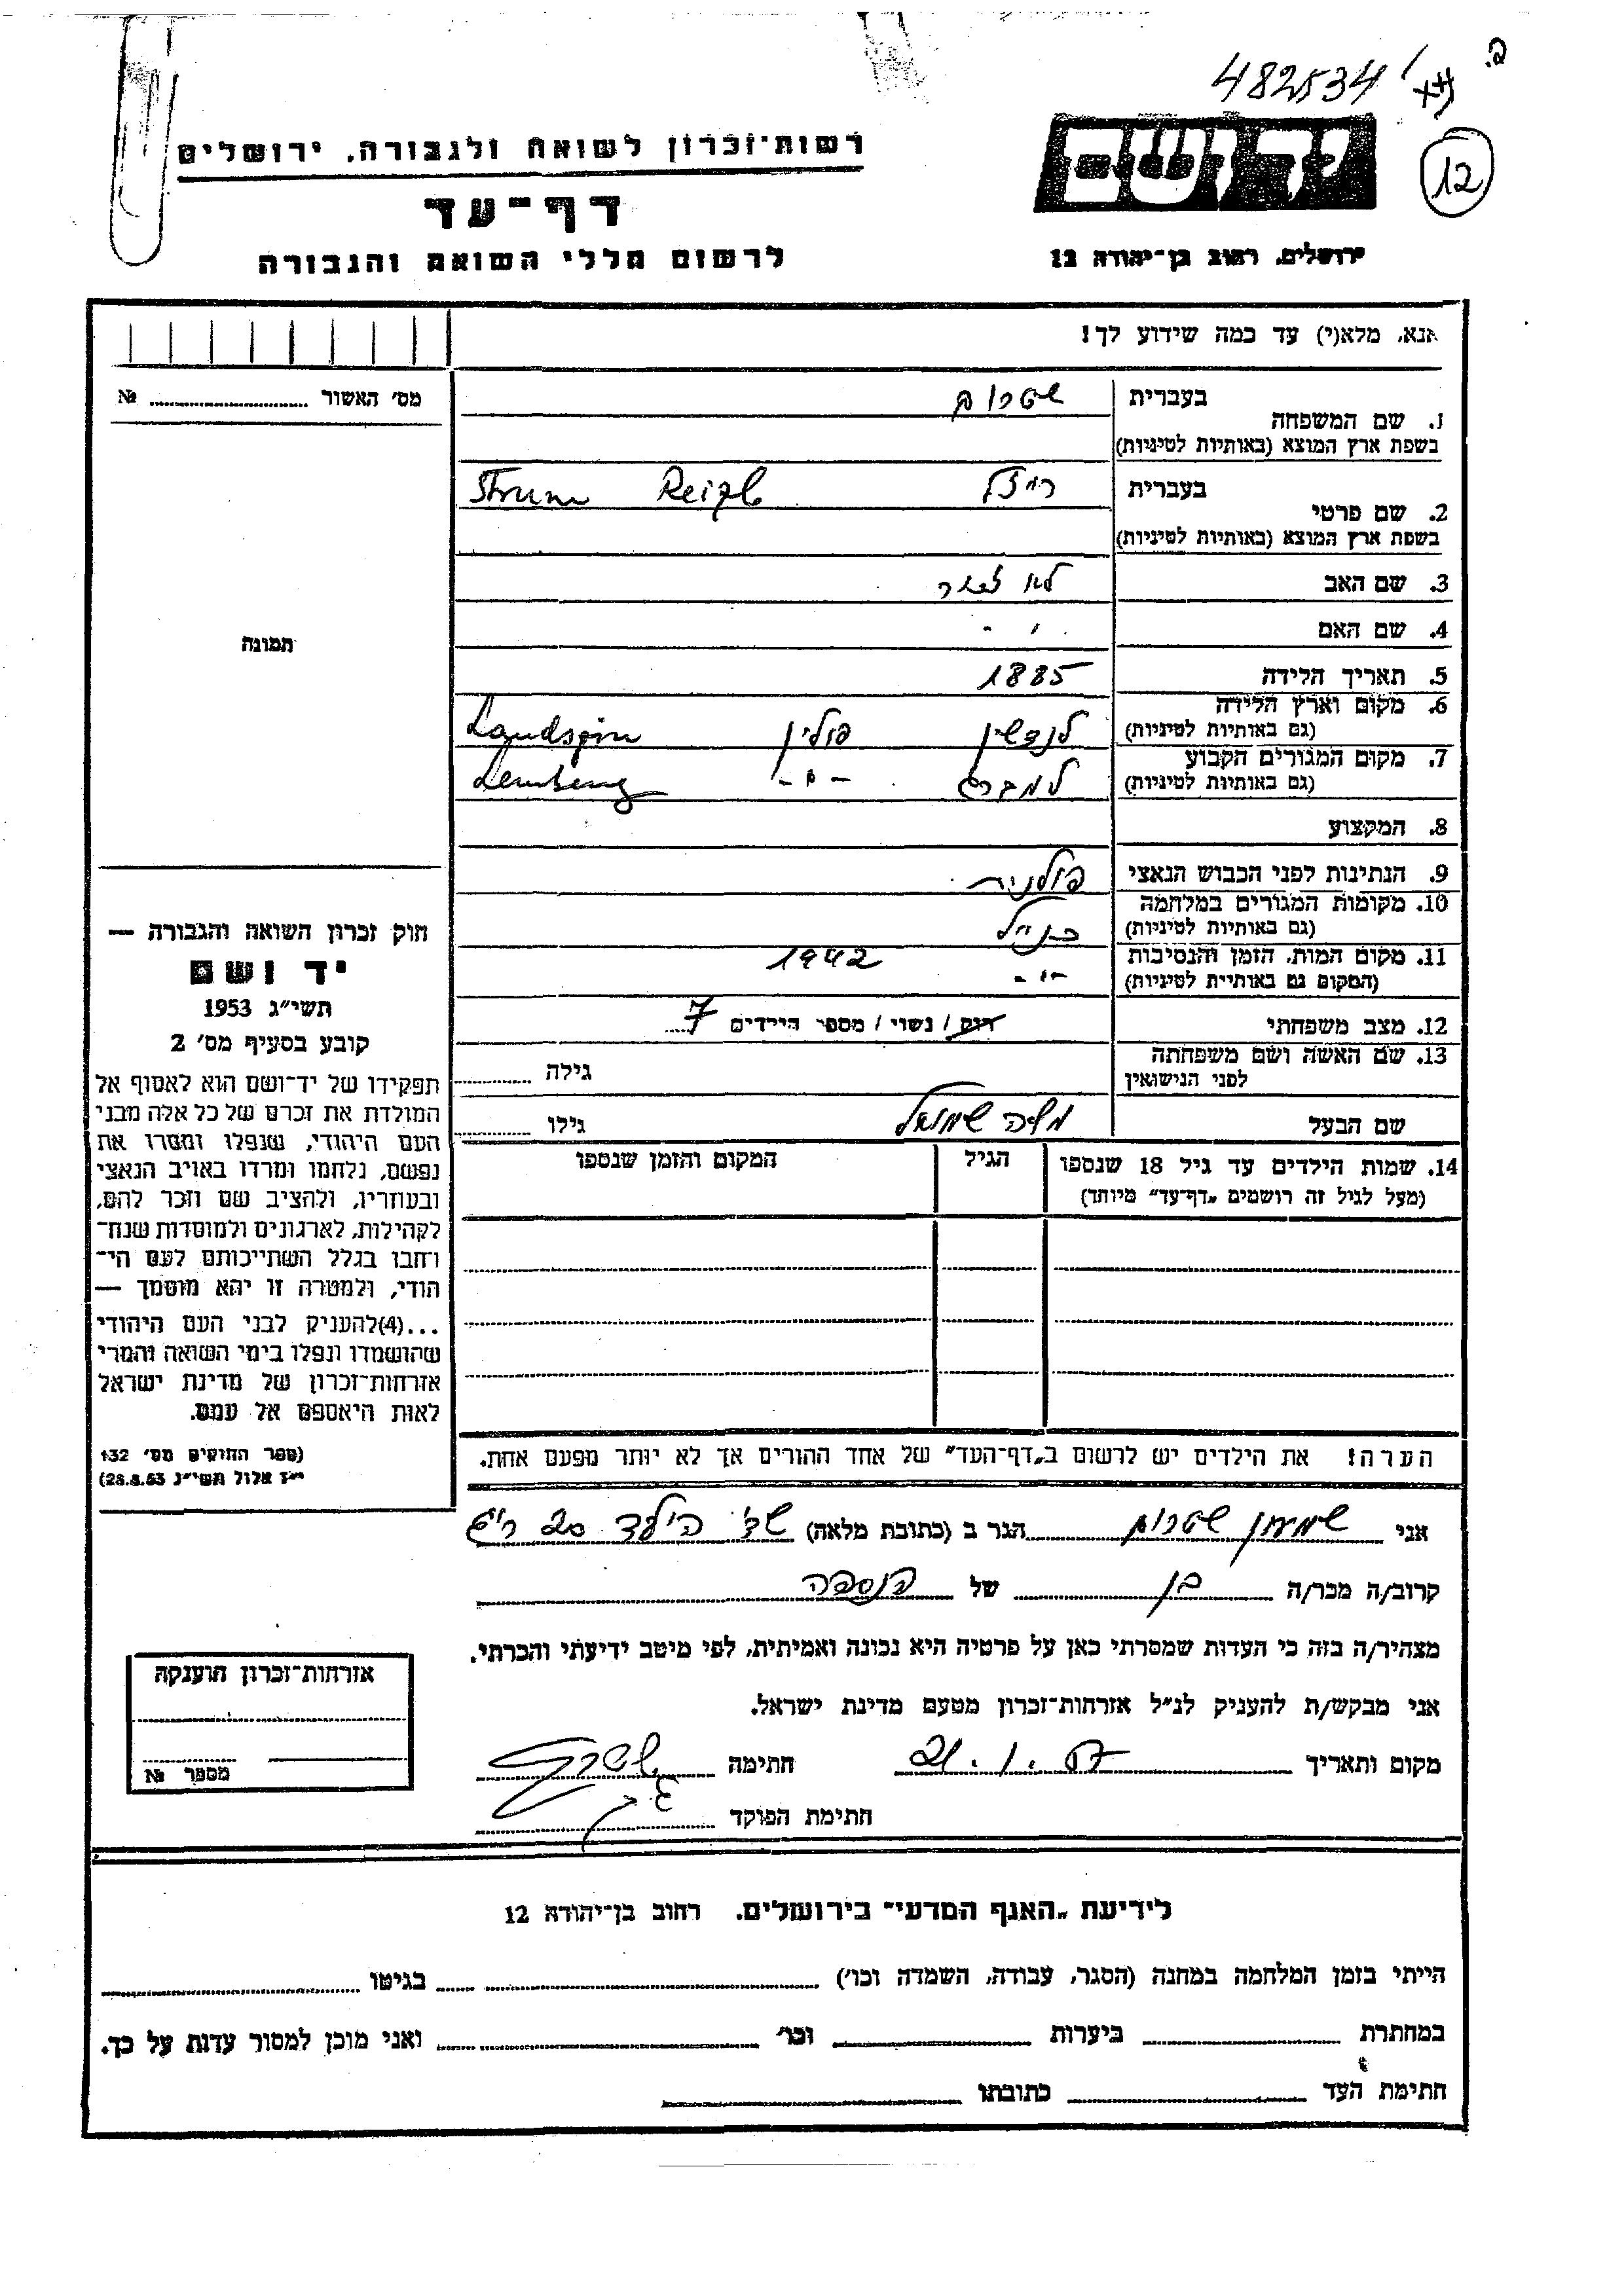 482534
ב.
12
יד ושם
רשות־זכרון לשואה ולגבורה, ירושלים
דף־עד
לרשום חללי השואה והגבורה
ירושלים, רחוב בן־יהודה 12
אנא, מלא(י) עד כמה שידוע לך!
מס׳ האשור ........ №
תמונה
בעברית שטרום
1. שם המשפחה
בשפת ארץ המוצא (באותיות לטיניות)
בעברית רייזל Reizla Strum
2. שם פרטי
בשפת ארץ המוצא (באותיות לטיניות)
3. שם האב לא זכור
4. שם האם - " -
5. תאריך הלידה 1885
6. מקום וארץ הלידה פולין
(גם באותיות לטיניות)
7. מקום המגורים הקבוע למברג -"- Lemberg
(גם באותיות לטיניות)
8. המקצוע
9. הנתינות לפני הכבוש הנאצי פולנית
10. מקומות המגורים במלחמה כנ״ל
(גם באותיות לטיניות)
11. מקום המות, הזמן והנסיבות -"- 1942
(המקום גם באותיות לטיניות)
12. מצב משפחתי רווק / נשוי / מספר הילדים 7
13. שם האשה ושם משפחתה גילה
לפני הנישואין
שם הבעל משה שמואל גילו
14. שמות הילדים עד גיל 18 שנספו הגיל המקום והזמן שנספו
(מעל לגיל זה רושמים „דף־עד״ מיוחד)
הערה! את הילדים יש לרשום ב„דף־העד״ של אחד ההורים אך לא יותר מפעם אחת.
חוק זכרון השואה והגבורה —
יד ושם
תשי״ג 1953
קובע בסעיף מס׳ 2
תפקידו של יד־ושם הוא לאסוף אל
המולדת את זכרם של כל אלה מבני
העם היהודי, שנפלו ומסרו את
נפשם, נלחמו ומרדו באויב הנאצי
ובעוזריו, ולהציב שם וזכר להם,
לקהילות, לארגונים ולמוסדות שנח־
רבו בגלל השתייכותם לעם הי־
הודי, ולמטרה זו יהא מוסמך —
...(4) להעניק לבני העם היהודי
שהושמדו ונפלו בימי השואה והמרי
אזרחות־זכרון של מדינת ישראל
לאות היאספם אל עמם.
(ספר החוקים מס׳ 132
י״ז אלול תשי״ג 28.8.53)
אני שמעון שטרום הגר ב (כתובת מלאה) שד׳ הילד 20 ר״ג
קרוב/ה מכר/ה בן של הנספה
מצהיר/ה בזה כי העדות שמסרתי כאן על פרטיה היא נכונה ואמיתית, לפי מיטב ידיעתי והכרתי.
אני מבקש/ת להעניק לנ״ל אזרחות־זכרון מטעם מדינת ישראל.
מקום ותאריך 21.1.57 חתימה
חתימת הפוקד
אזרחות־זכרון הוענקה
מספר №
לידיעת „האגף המדעי״ בירושלים, רחוב בן־יהודה 12
הייתי בזמן המלחמה במחנה (הסגר, עבודה, השמדה וכו׳) ........ בגיטו ........
במחתרת ........ ביערות ........ וכו׳ ........ ואני מוכן למסור עדות על כך.
חתימת העד ........ כתובתו ........